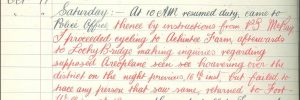 Saturday :- At 10 AM. resumed duty, came to
Police Office, thence by instructions from P.S. McPhy
I proceeded cycling to Achintee Farm, afterwards
to Lochy Bridge making inquiries regarding
supposed Aeroplane seen see hoovering over the
district on the night previous, 16th inst, but failed to
trace any person that saw same, returned to Fort-